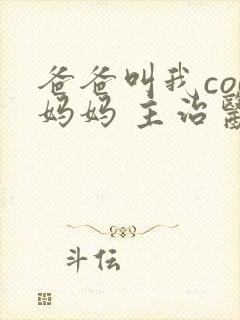 爸爸叫我co
妈妈 主治
斗伝